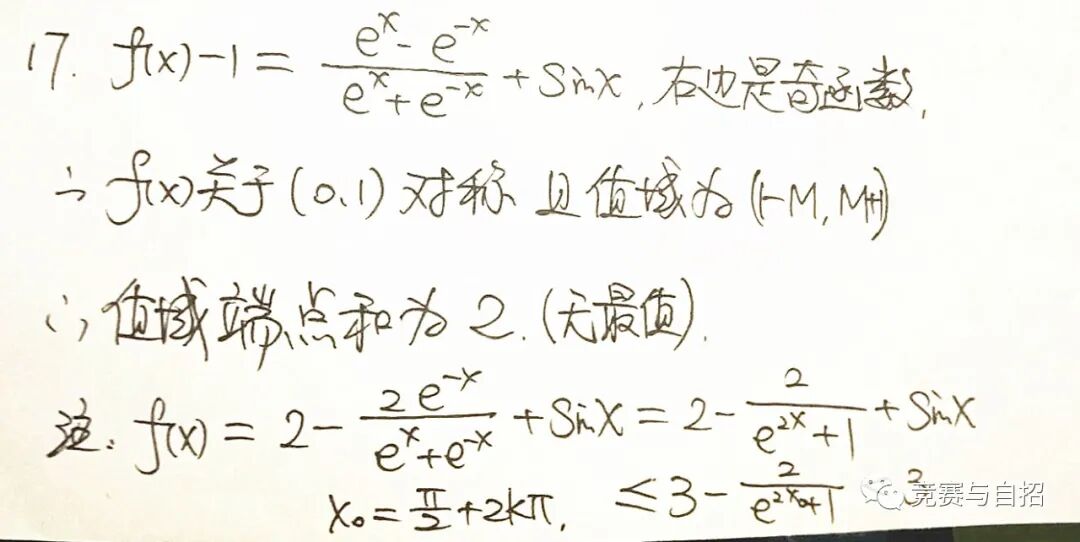 17. f(x)-1 = \frac{e^x - e^{-x}}{e^x + e^{-x}} + sinx, 右边是奇函数,
∴ f(x)关于(0,1)对称 且值域为(1-M, M+1)
∴ 值域端点和为2.(无最值).
注: f(x) = 2 - \frac{2e^{-x}}{e^x + e^{-x}} + sinx = 2 - \frac{2}{e^{2x}+1} + sinx
x₀ = \frac{π}{2} + 2kπ, ≤ 3 - \frac{2}{e^{2x₀}+1}
竞赛与自招